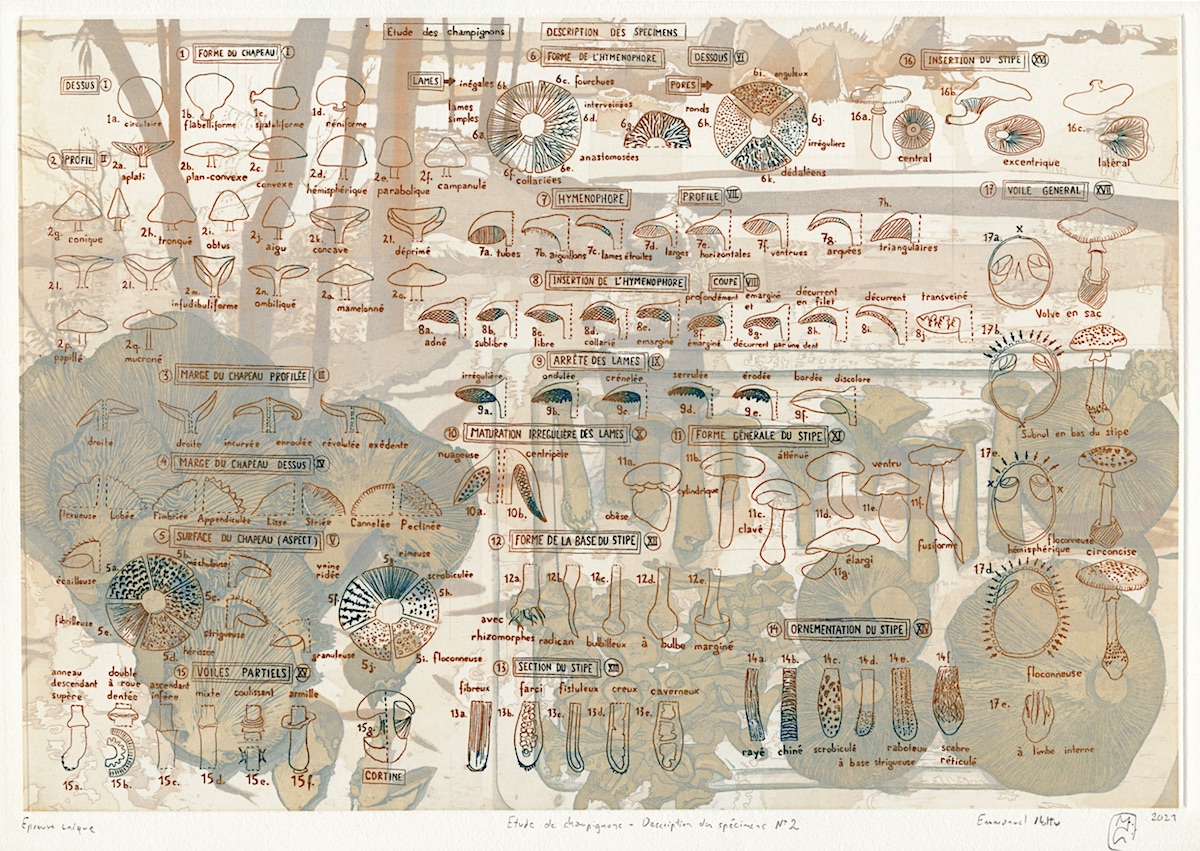 Etude des champignons
DESCRIPTION DES SPECIMENS
1 FORME DU CHAPEAU I
DESSUS I
1a. circulaire
1b. flabelliforme
1c. spatuliforme
1d. réniforme
2 PROFIL II
2a. aplati
2b. plan-convexe
2c. convexe
2d. hémisphérique
2e. parabolique
2f. campanulé
2g. conique
2h. tronqué
2i. obtus
2j. aigu
2k. concave
2l. déprimé
2l.
2l.
2m. infudibuliforme
2n. ombiliqué
2o. mamelonné
2o.
2p. papillé
2q. mucroné
3 MARGE DU CHAPEAU PROFILÉE III
droite
droite
incurvée
enroulée
révolutée
exédente
4 MARGE DU CHAPEAU DESSUS IV
flexueuse
Lobée
Fimbriée
Appendiculée
Lisse
Striée
Cannelée
Pectinée
5 SURFACE DU CHAPEAU (ASPECT) V
écailleuse
5a.
5b. méchuleuse
5c.
strigueuse
5d. hérissée
5e. fibrilleuse
veine ridée
5f.
5g. rimeuse
5h. scrobiculée
5i. floconneuse
5j. granuleuse
6 FORME DE L'HYMENOPHORE
DESSOUS VI
LAMES
inégales 6b.
6c. fourchues
lames simples 6a.
interveinées 6d.
6e.
6f. collariées
6g. anastomosées
PORES
ronds 6h.
6i. anguleux
6j. irréguliers
6k. dédaléens
7 HYMENOPHORE
PROFILE VII
7a. tubes
7b. aiguillons
7c. lames étroites
7d. larges
7e. horizontales
7f. ventrues
7g. arquées
7h. triangulaires
8 INSERTION DE L'HYMENOPHORE
COUPE VIII
8a. adné
8b. sublibre
8c. libre
8d. collarié
8e. emarginé
profondément
8f. émarginé
emarginé et
8g. décurrent par une dent
décurrent en filet
8h.
décurrent
8i.
transveiné
8j.
9 ARRÊTE DES LAMES IX
irrégulière 9a.
ondulée 9b.
crénelée 9c.
serrulée 9d.
érodée 9e.
bordée discolore 9f.
10 MATURATION IRREGULIÈRE DES LAMES X
nuageuse
centripète
10a.
10b.
11 FORME GÉNÉRALE DU STIPE XI
11a. obèse
11b. cylindrique
11c. clavé
atténué 11d.
ventru 11e.
11f. fusiforme
élargi 11g.
12 FORME DE LA BASE DU STIPE XII
12a. avec rhizomorphes
12b. radican
12c. bulbilleux
12d. à bulbe
12e. marginé
13 SECTION DU STIPE XIII
fibreux 13a.
farci 13b.
fistuleux 13c.
creux 13d.
caverneux 13e.
14 ORNEMENTATION DU STIPE XIV
14a. rayé
14b. chiné
14c. scrobiculé
14d. à base strigueuse
14e. raboteux
14f. scabre réticulé
15 VOILES PARTIELS XV
anneau descendant supère 15a.
double à roue dentée 15b.
ascendant infère 15c.
mixte 15d.
coulissant 15e.
armille 15f.
15g. CORTINE
16 INSERTION DU STIPE XVI
16a. central
16b. excentrique
16c. latéral
17 VOILE GENERAL XVII
17a. x
Volve en sac
17b.
Subnul en bas du stipe
17c.
x
floconneuse
hémisphérique circoncise
17d.
floconneuse
17e.
à limbe interne
Epreuve unique
Etude de champignons - Description des spécimens N°2
Emmanuel
2021